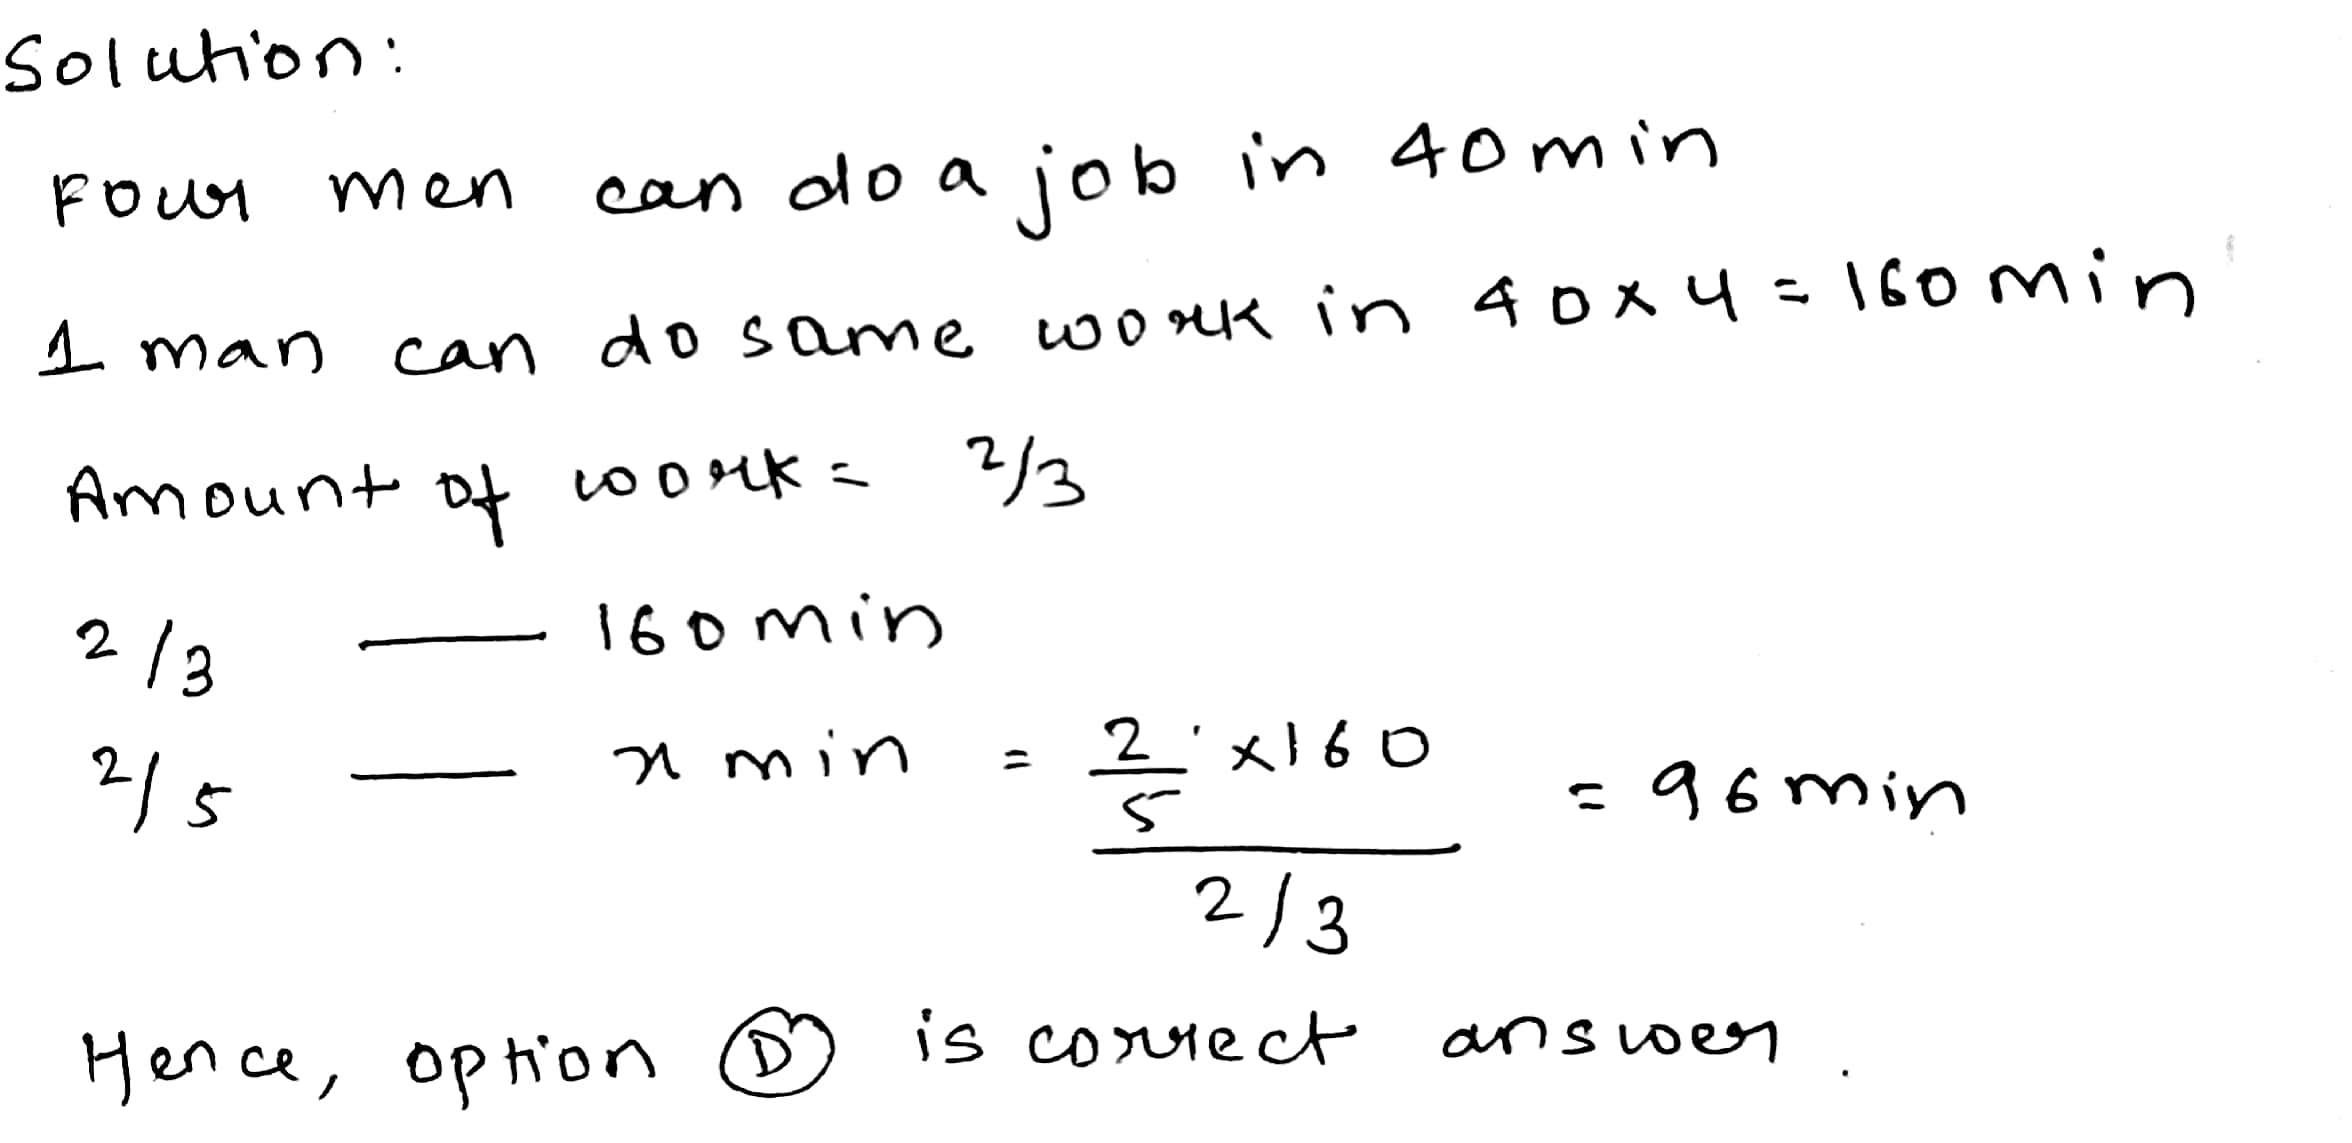 Solution:
Four men can do a job in 40 min
1 man can do same work in 40 x 4 = 160 min
Amount of work = 2/3
2/3 — 160 min
2/5 — x min = 2/5 x 160 / 2/3 = 96 min
Hence, option D is correct answer.